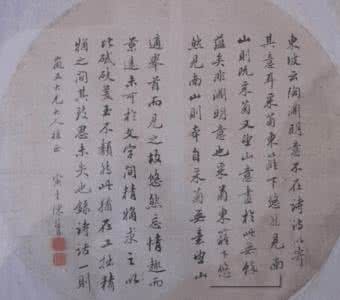 東坡云陶淵明意不在詩詩以寄
其意耳采菊東籬下悠然見南
山則既采菊又望山意盡於此無餘
蘊矣非淵明意也采菊東籬下悠
然見南山則本自采菊無意望山
適舉首而見之故悠然忘情趣而
景遠未可於文字間精粗求之以
比碔砆美玉不類然此猶在工拙精
粗之間其致思未失也錄詩話一則
五大兄大人雅正 寅生陳